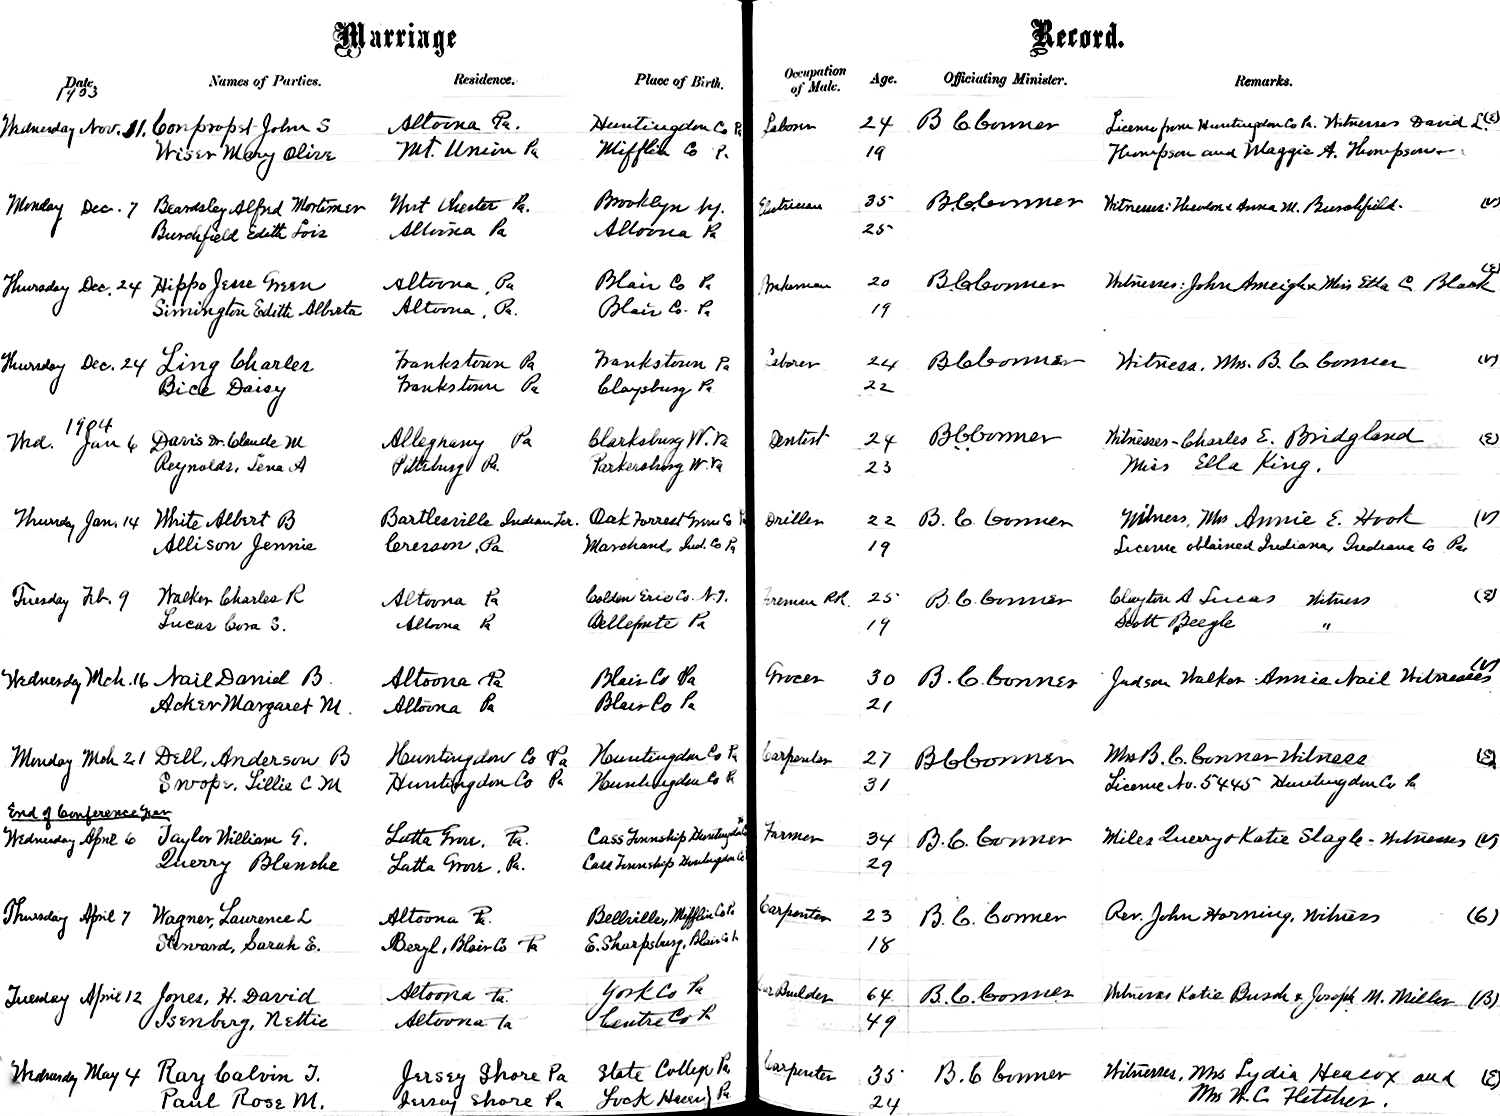 Marriage Record.
Date. Names of Parties. Residence. Place of Birth. Occupation of Male. Age. Officiating Minister. Remarks.
1903
Wednesday Nov. 11. Conpropst John S Altoona Pa. Huntingdon Co Pa Laborer 24 B C Conner License from Huntingdon Co Pa. Witnesses David L. (E)
Wiser Mary Olive Mt. Union Pa Mifflin Co P. 19 Thompson and Maggie A. Thompson
Monday Dec. 7 Beardsley Alfred Mortimer West Chester Pa. Brooklyn Ny. Electrician 35 B.C.Conner Witnesses: Theodore & Anna M. Burchfield. (V)
Burchfield Edith Lois Altoona Pa Altoona Pa 25
Thursday Dec. 24 Hippo Jesse Green Altoona, Pa Blair Co Pa Brakeman 20 B C Conner Witnesses: John Ameigh & Miss Etta C Black (E)
Simington Edith Alberta Altoona, Pa. Blair Co. Pa 19
Thursday Dec. 24 Ling Charles Frankstown Pa Frankstown Pa Laborer 24 B C Conner Witness, Mrs. B. C. Conner (V)
Bice Daisy Frankstown Pa Claysburg Pa 22
1904
Wed. Jan 6 Davis Dr. Claude M Alleghany Pa Clarksburg W. Va Dentist 24 B.C.Conner Witnesses - Charles E. Bridgland (E)
Reynolds, Lena A Pittsburg Pa. Parkersburg W. Va 23 Miss Ella King.
Thursday Jan. 14 White Albert B Bartlesville Indian Ter. Oak Forrest Green Co Driller 22 B. C. Conner Witness, Mrs Annie E. Hook (V)
Allison Jennie Cresson, Pa Marchand, Ind. Co Pa 19 License obtained Indiana, Indiana Co Pa.
Tuesday Feb. 9 Walker Charles R Altoona Pa Colden Erie Co. N.Y. Fireman RR. 25 B. C. Conner Clayton A Lucas Witness (E)
Lucas Cora S. Altoona Pa Bellefonte Pa 19 Scott Beegle "
Wednesday Mch. 16 Nail Daniel B. Altoona Pa Blair Co Pa Grocer 30 B. C. Conner Judson Walker Annie Nail Witnesses (V)
Acker Margaret M. Altoona Pa Blair Co Pa 21
Monday Mch 21 Dell, Anderson B Huntingdon Co Pa Huntingdon Co Pa Carpenter 27 B C Conner Mrs B. C. Conner Witness (E)
Swope, Lillie C M Huntingdon Co Pa Huntingdon Co Pa 31 License No. 5445 Huntingdon Co Pa
End of Conference Year
Wednesday April 6 Taylor William G. Latta Grove, Pa. Cass Township Huntingdon Co Pa Farmer 34 B. C. Conner Miles Querry & Katie Slagle - Witnesses (V)
Querry Blanche Latta Grove, Pa. Cass Township Huntingdon Co 29
Thursday April 7 Wagner, Laurence L Altoona Pa. Bellville, Mifflin Co Pa Carpenter 23 B. C. Conner Rev. John Horning, Witness (G)
Steward, Sarah E. Beryl, Blair Co Pa E. Sharpsburg, Blair Co 18
Tuesday April 12 Jones, H. David Altoona Pa. York Co Pa Car Builder 64 B. C. Conner Witnesses Katie Busch & Joseph M. Miller (B)
Isenberg, Nettie Altoona Pa Centre Co P 49
Wednesday May 4 Ray Calvin T. Jersey Shore Pa State College Pa Carpenter 35 B. C Conner Witnesses, Mrs Lydia Heacox and (E)
Paul Rose M. Jersey Shore Pa Lock Haven Pa 24 Mrs W. C. Fletcher.